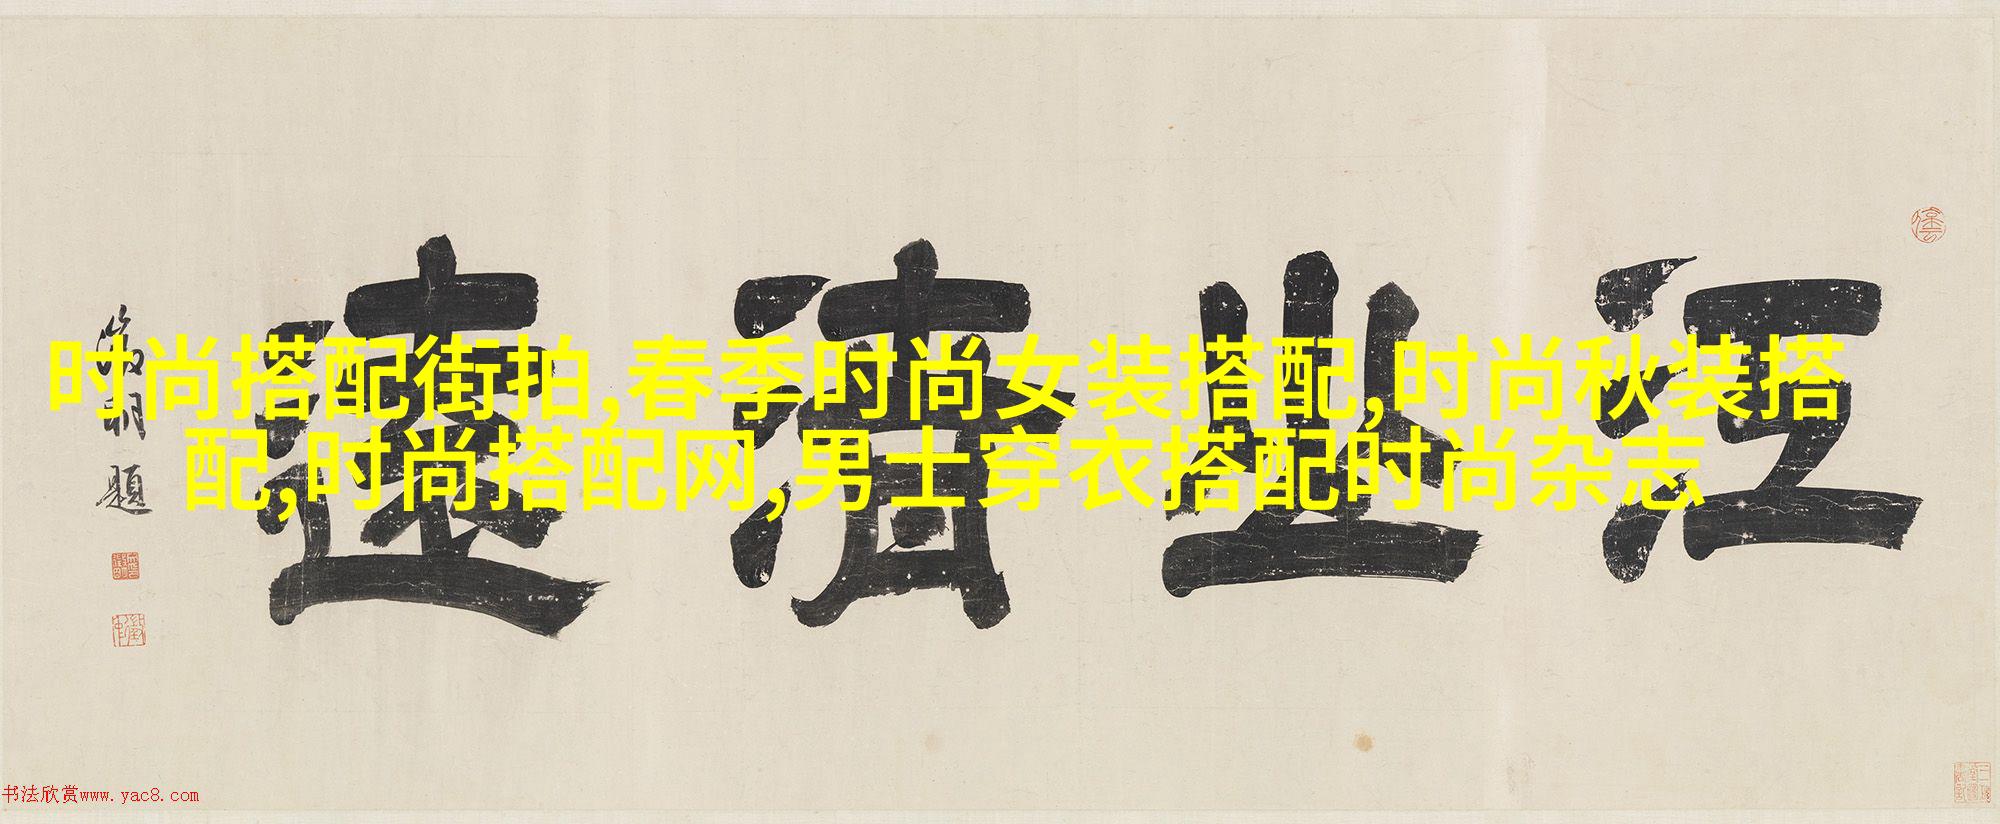 时尚搭配街拍,春季时尚女装搭配,时尚秋装搭
配,时尚搭配网,男士穿衣搭配时尚杂志
江山清遠
徵明題
书法欣赏www.yac8.com